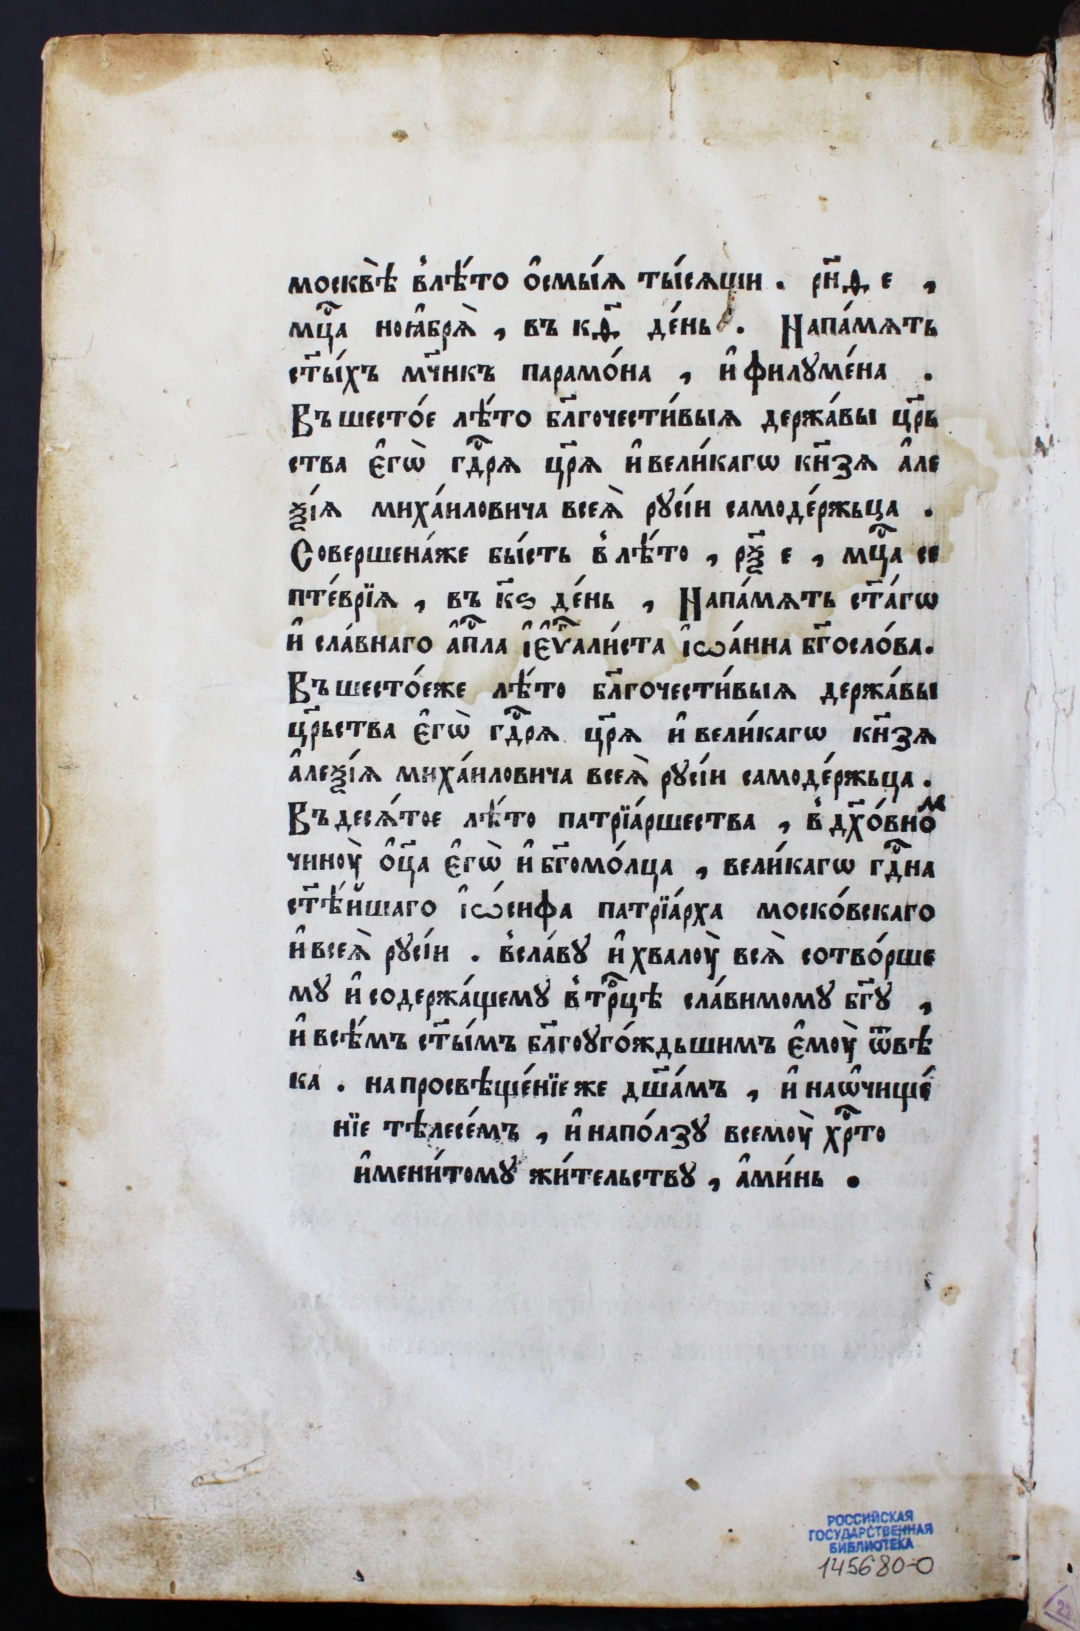 москвѣ̀ в̾лѣ́то ѻ҆смы́ѧ ты́сѧщи . рн҃д е ,
мцⷭ҇а ноѧ҆брѧ̀ , въ кд҃ де́нь . Напа́мѧть
ст҃ы́хъ мч҃нкъ парамо́на , и҆ филꙋме́на .
Въ шесто́е лѣ́то бл҃гочести́выѧ держа́вы цр҃ь
ства є҆гѡ̀ гдⷭ҇рѧ цр҃ѧ и҆ вели́кагѡ кн҃зѧ а҆ле
ѯі́ѧ миха́иловича всеѧ̀ рꙋсі́и самоде́ржьца .
Совершена́же бы́сть в̾ лѣ́то , рѯ҃ е , мцⷭ҇а се
пте́врїѧ , въ к҃ѕ де́нь , Напа́мѧть ст҃а́гѡ
и҆ сла́внаго а҆пⷭ҇ла і҆є҆ѵⷢ҇али́ста і҆ѡа́нна бг҃осло́ва.
Въ шесто́еже лѣ́то бл҃гочести́выѧ держа́вы
цр҃ьства є҆гѡ̀ гдⷭ҇рѧ цр҃ѧ и҆ вели́кагѡ кн҃зѧ
а҆леѯі́ѧ миха́иловича всеѧ̀ рꙋсі́и самоде́ржьца .
Въ десѧ́тое лѣ́то патрїа́ршества , в̾ дх҃о́вноⷨ
чиноу̀ ѻ҆ц҃а є҆гѡ̀ и҆ бг҃омо́лца , вели́кагѡ гдⷭ҇на
ст҃ѣ́йшаго і҆ѡ́сифа патрїа́рха моско́вскаго
и҆ всеѧ̀ рꙋсі́и . в̾сла́вꙋ и҆ хвалоу̀ всѧ̀ сотво́рше
мꙋ и҆ содержа́щемꙋ в̾ трⷪ҇цѣ сла́вимомꙋ бг҃ꙋ ,
и҆ всѣ́мъ ст҃ы́мъ бл҃гоуго́ждьшимъ є҆моу̀ ѿвѣ́
ка . на просвѣще́нїе же дш҃а́мъ , и҆ наѡ҆чище́
нїе тѣлесе́мъ , и҆ напо́лзꙋ всемоу̀ хрⷭ҇то
и҆мени́томꙋ жи́тельствꙋ , а҆ми́нь .
РОССИЙСКАЯ
ГОСУДАРСТВЕННАЯ
БИБЛИОТЕКА
145680-0
22